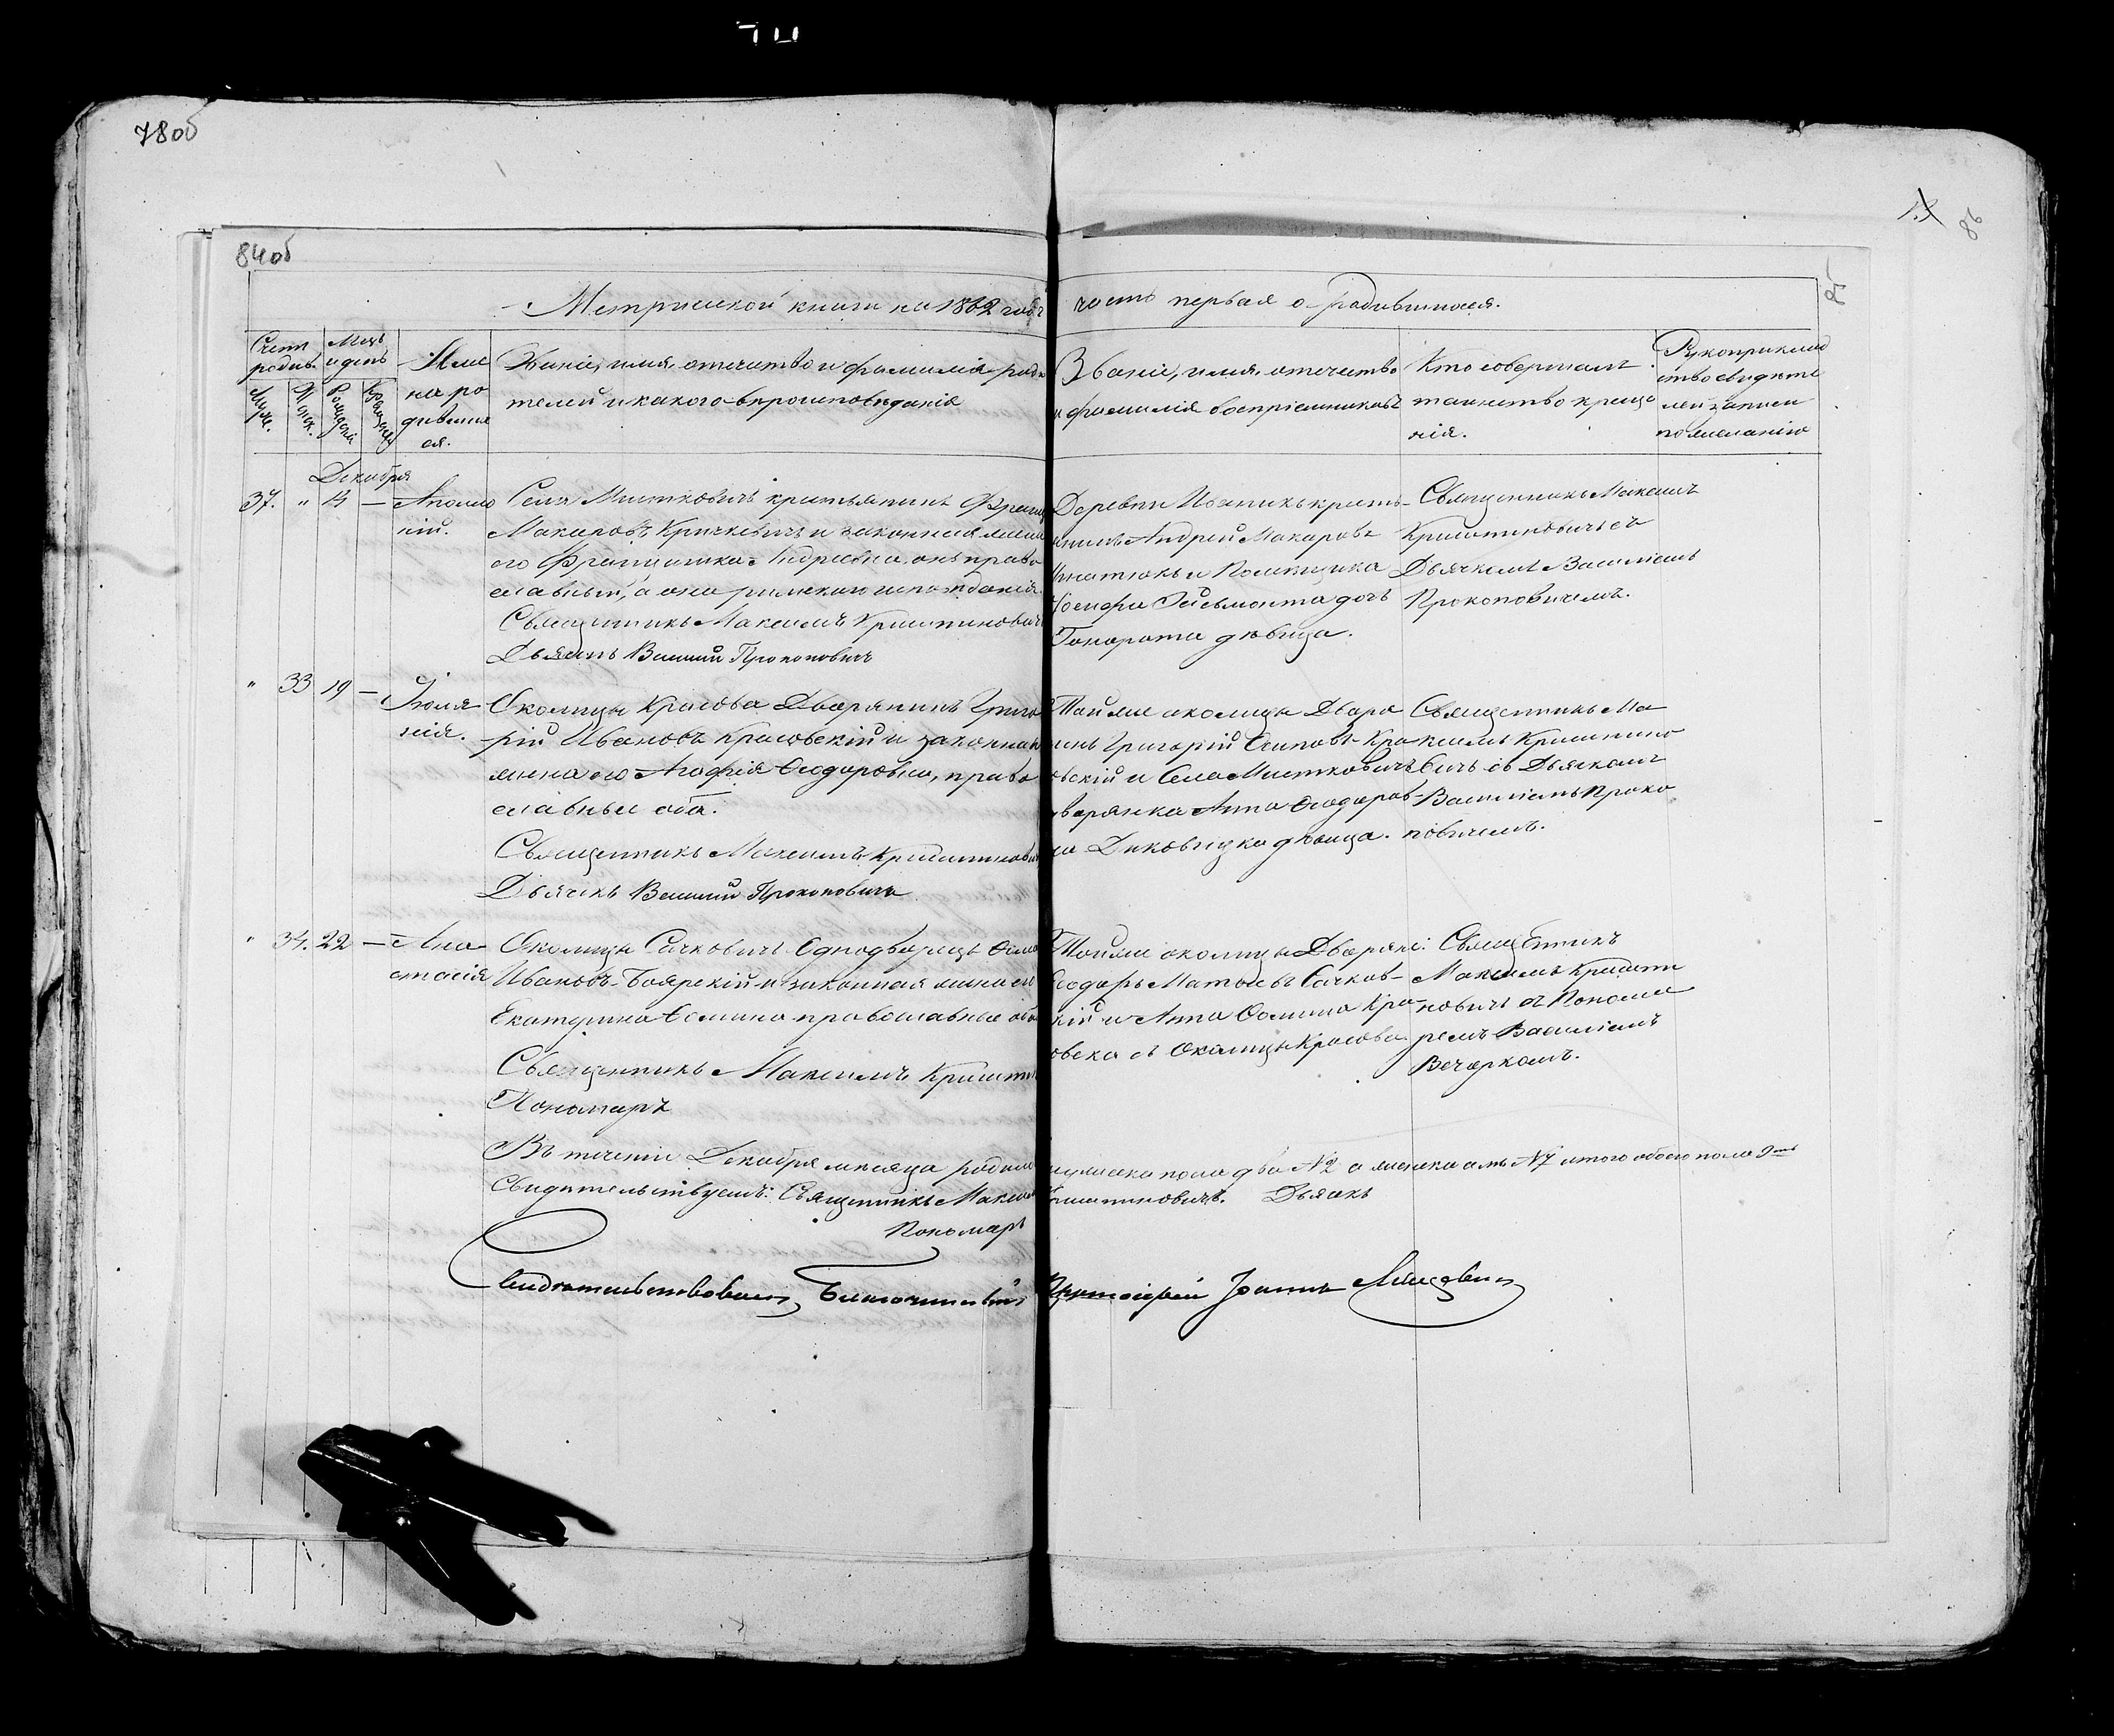 78об
84об
86
Метрической книги на 1862 годъ
часть первая о родившихся.
Счетъ родив.
Мѣсц. и день
Муж.
Жен.
Рожденія
Крещенія
Име
на ро
дившихся
ся.
Званіе, имя, отечество и фамилія роди
телей и какого вѣроисповѣданія
Званіе, имя, отечество
и фамилія воспріемниковъ
Кто совершалъ
таинство креще
нія.
Рукоприклад
ство свидѣте
лей записи
по желанію
Декабря
37. " 4 — Аполло
ній.
Села Мистковичъ крестьянинъ
Макаровъ Кричкевичъ и законная жена
его Францишка Андреевна, онъ право
славный, а она римскаго исповѣданія.
Священникъ Максимъ Криштиновичъ
Дьячекъ Василий Прокоповичъ
Деревни Иваникъ кресть-
янинъ Андрей Макаровъ
Игнатюкъ и Помѣщика
Іосифа Эйсмонта дочь
Гонората дѣвица.
Священникъ Максимъ
Криштиновичъ съ
Дьячкомъ Василіемъ
Прокоповичемъ.
" 33 19 — Іюліа
нія.
Околицы Красова Дворянинъ Григо
рій Ивановъ Красовскій и законная
жена его Агафія Ѳеодоровна, право
славные оба.
Священникъ Максимъ Криштиновичъ
Дьячекъ Василий Прокоповичъ
Той же околицы Дворя
нинъ Григорій Осиповъ Кра
совскій и Села Мистковичъ
дворянка Анна Ѳеодоров-
на Диковицка дѣвица.
Священникъ Ма
ксимъ Криштино
вичъ съ Дьячкомъ
Василіемъ Проко
повичемъ.
" 34. 22 — Ана
стасія
Околицы Сачковичъ Однодворецъ
Ивановъ Боярскій и законная жена его
Екатерина Ѳомина православные оба
Священникъ Максимъ Кришти
Пономарь
Той же околицы Дворяне:
Ѳеодоръ Матѳеевъ Сачков-
скій и Анна Ѳомина Кра-
совска съ Околицы Красова.
Священникъ
Максимъ Кришти
новичъ съ Понома
ремъ Василіемъ
Вечеркомъ.
Въ теченіи Декабря мѣсяца родилось
мужеска пола два №2 а женска семь №7 итого обоего пола 9ть
Свидѣтельствуемъ: Священникъ Максимъ
Криштиновичъ. Дьячекъ
Пономарь
Свидѣтельствовалъ Благочинный
Протоіерей Іоаннъ